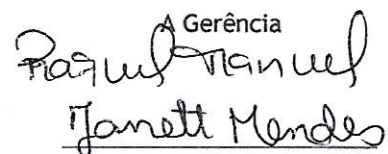 A Gerência
Raquel Manuel
Janett Mendes